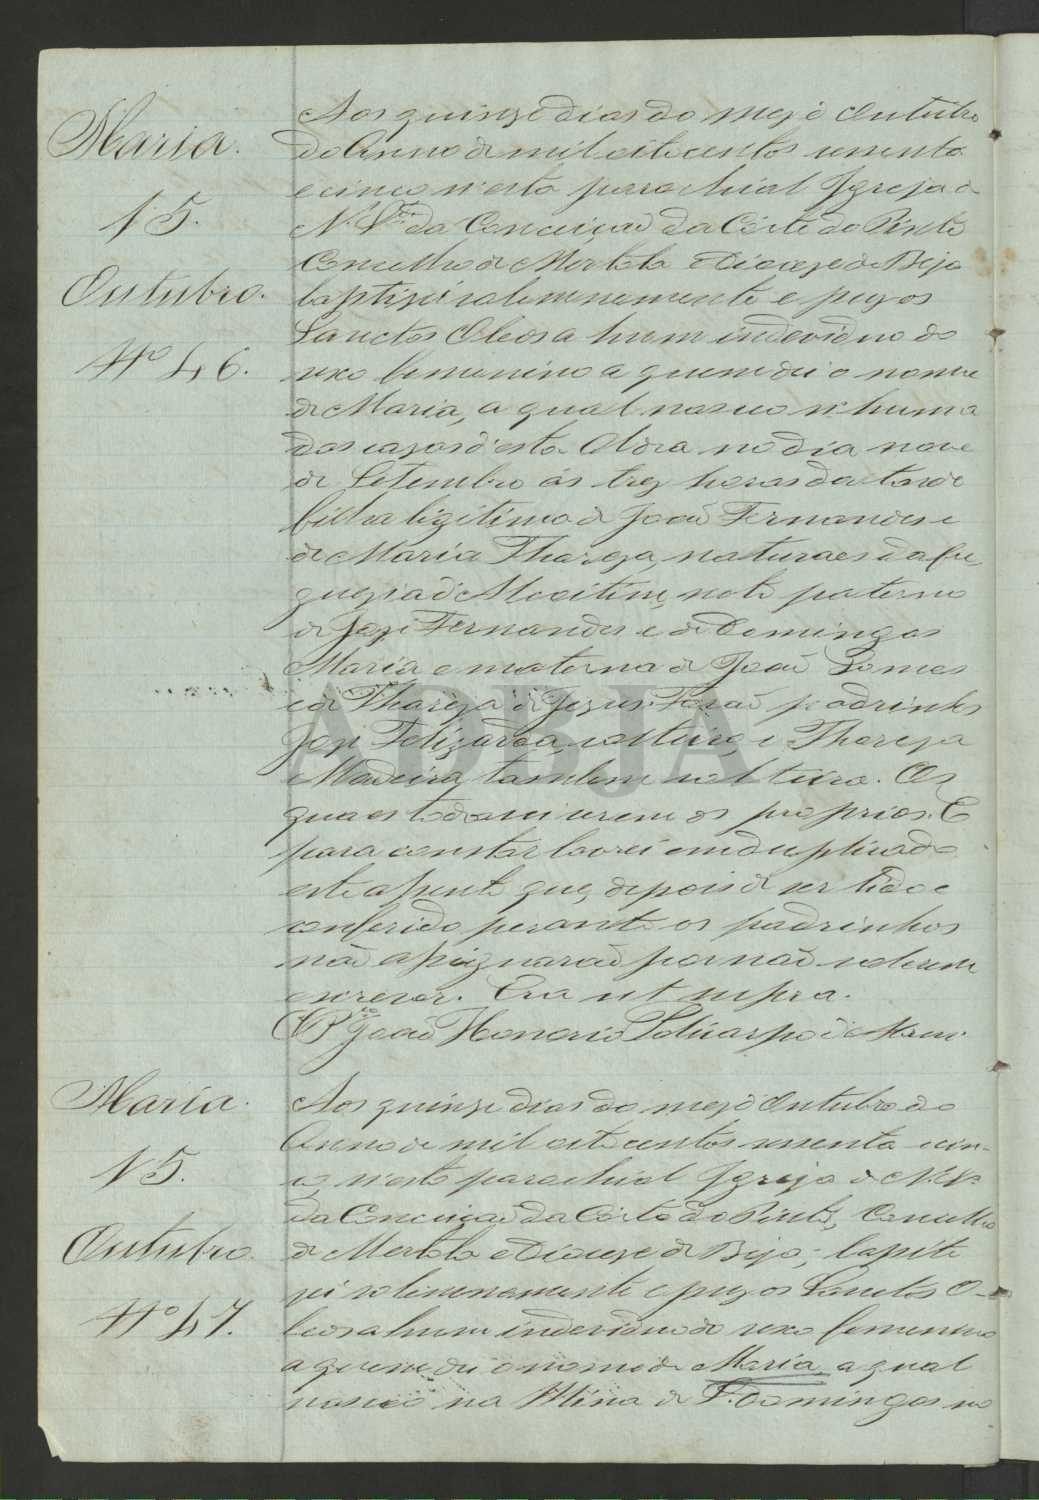 Maria.
15.
Outubro.
Nº 46.
Aos quinze dias do mez d'Outubro
do Anno de mil oitocentos secenta
e cinco n'esta parochial Igreja de
N. Srª da Conceição da Côrte do Pinto
Concelho de Mertola e Diocese de Beja
baptizei solemnemente e puz os
Sanctos Oleos a hum individuo do
sexo femenino a quem dei o nome
de Maria, a qual nasceo n'huma
das cazas d'esta Aldea no dia nove
de Setembro ás trez horas da tarde
filha legitima de João Fernandes e
de Maria Thereza, naturaes da fre
guezia de Moutim, neta paterna
de José Fernandes e de Domingas
Maria e materna de João Gomes
e de Thareza de Jezus. Forão padrinhos
José Felizardo, solteiro, e Thereza
Madeira tambem solteira. Os
quaes todos os proprios. E
para constar lavrei em duplicado
este assento que, depois de ser lido e
conferido perante os padrinhos
não assignarão por não saberem
escrever. Era ut supra.
O Pr. João Honorio Policarpo de
Maria.
15.
Outubro.
Nº 47.
Aos quinze dias do mez d'Outubro do
Anno de mil oitocentos secenta cin-
co, n'esta parochial Igreja de N. Sª
da Conceição da Côrte do Pinto, Concelho
de Mertola e Diocese de Beja, baptì
zei solemnemente e puz os Sanctos O-
leos a hum individuo do sexo femenino
a quem dei o nome de Maria, a qual
nasceo na Mina de S. Domingos no
ADBJA